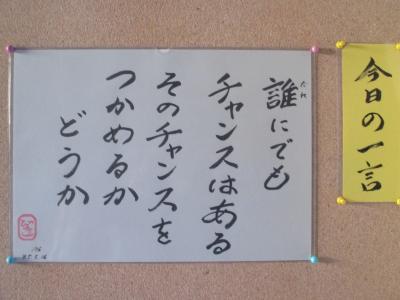 今日の一言
誰にでも
だれ
チャンスはある
そのチャンスを
つかめるか
どうか